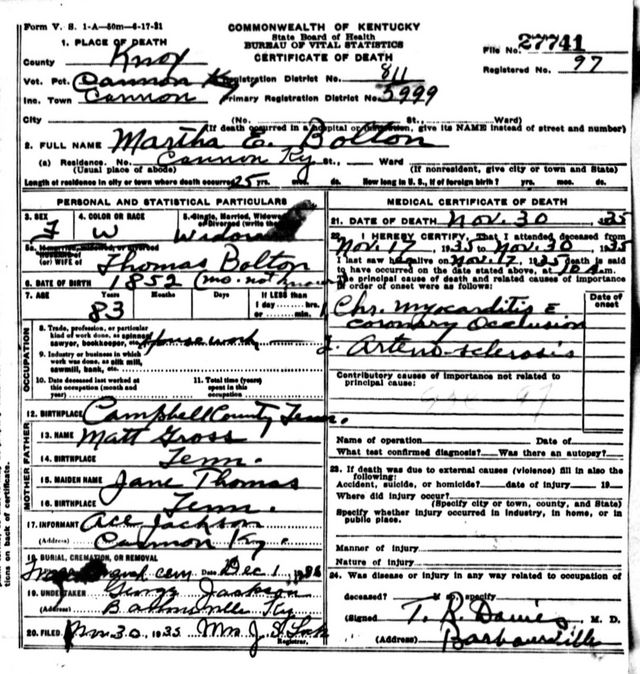 Form V. S. 1-A—50m—6-17-31
COMMONWEALTH OF KENTUCKY
State Board of Health
BUREAU OF VITAL STATISTICS
CERTIFICATE OF DEATH
File No. 27741
Registered No. 97
1. PLACE OF DEATH
County Knox
Vot. Pct. Cannon Ky Registration District No. 811
Inc. Town Cannon Primary Registration District No. 5999
City (No. St., Ward)
(If death occurred in a hospital or institution, give its NAME instead of street and number)
2. FULL NAME Martha E. Bolton
(a) Residence. No. Cannon Ky St., Ward
(Usual place of abode) (If nonresident, give city or town and State)
Length of residence in city or town where death occurred 25 yrs. mos. ds. How long in U. S., if of foreign birth? yrs. mos. ds.
PERSONAL AND STATISTICAL PARTICULARS
3. SEX F
4. COLOR OR RACE W
5. Single, Married, Widowed, or Divorced (write the word)
5a. If married, widowed or divorced
(or) WIFE of Thomas Bolton
6. DATE OF BIRTH 1852 (mo. not known)
7. AGE Years Months Days If LESS than
83 1 day hrs.
or min.
OCCUPATION
8. Trade, profession, or particular
kind of work done, as spinner,
sawyer, bookkeeper, etc. Housework
9. Industry or business in which
work was done, as silk mill,
sawmill, bank, etc.
10. Date deceased last worked at
this occupation (month and
year)
11. Total time (years)
spent in this
occupation
12. BIRTHPLACE Campbell County Tenn.
FATHER
13. NAME Matt Gross
14. BIRTHPLACE Tenn.
MOTHER
15. MAIDEN NAME Jane Thomas
16. BIRTHPLACE Tenn.
17. INFORMANT Ace Jackson
(Address) Cannon Ky.
18. BURIAL, CREMATION, OR REMOVAL
cem Dec 1, 19
19. UNDERTAKER George Jackson
(Address) Barbourville Ky
20. FILED 30, 1935 Mrs. J. S.
Registrar.
MEDICAL CERTIFICATE OF DEATH
21. DATE OF DEATH Nov. 30 1935
22. I HEREBY CERTIFY, That I attended deceased from
Nov. 17, 1935 to Nov. 30 1935
I last saw her alive on Nov. 17, 1935 death is said
to have occurred on the date stated above, at 10 a.m.
The principal cause of death and related causes of importance
in order of onset were as follows:
Date of
onset
Chr. Myocarditis E
Coronary Occlusion
Arterio-sclerosis
Contributory causes of importance not related to
principal cause:
Name of operation Date of
What test confirmed diagnosis? Was there an autopsy?
23. If death was due to external causes (violence) fill in also the
following:
Accident, suicide, or homicide? date of injury 19
Where did injury occur?
(Specify city or town, county, and State)
Specify whether injury occurred in industry, in home, or in
public place.
Manner of injury
Nature of injury
24. Was disease or injury in any way related to occupation of
deceased? so, specify
(Signed T. R. Davies M. D.
(Address) Barbourville
tions on back of certificate.